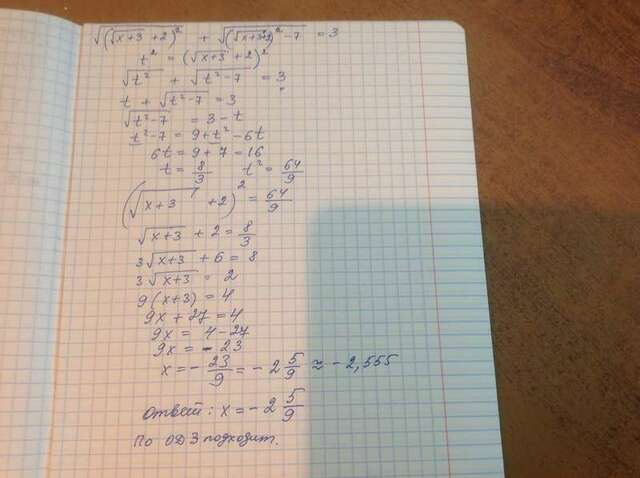 √((√(x+3) +2)²) + √((√(x+3)+2)² -7) = 3
t² = (√(x+3) +2)²
√(t²) + √(t²-7) = 3
t + √(t²-7) = 3
√(t²-7) = 3 - t
t²-7 = 9 + t² - 6t
6t = 9 + 7 = 16
t = 8/3 t² = 64/9
(√(x+3) +2)² = 64/9
√(x+3) + 2 = 8/3
3√(x+3) + 6 = 8
3√(x+3) = 2
9(x+3) = 4
9x + 27 = 4
9x = 4 - 27
9x = - 23
x = - 23/9 = - 2 5/9 ≈ - 2,555
Ответ: x = - 2 5/9
По ОДЗ подходит.